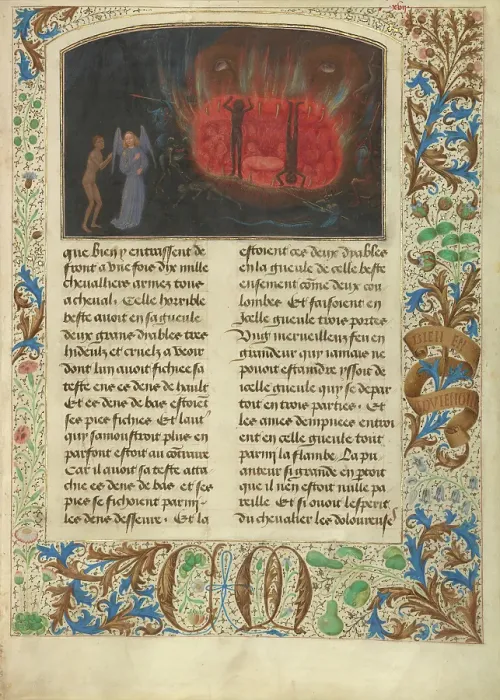 xvij
que bien y entraissent de
front a vne fois dix mille
cheualliers armez tous
a cheual. Celle horrible
beste auoit en sa gueule
deux grans dyables tres
hideux et cruelz a veoir
dont lun auoit fichie sa
teste ens es dens de hault
Et es dens de bas estoiēt
ses pies fichies. Et laut'
qui samoustroit plus en
parfont estoit au cōtraire
Car il auoit sa teste atta
chie es dens de bas et ses
pies se fichoient parmy
les dens desseure. Et la
estoient ces deux dyables
en la gueule de celle beste
ensement cōme deux cou
lombes Et faisoient en
Jcelle gueule trois portes
Vng merueilleux feu en
grandeur qui iamais ne
pouoit estaindre yssoit de
icelle gueule qui se depar
toit en trois parties. Et
les ames dempnees entroi
ent en celle gueule tout
parmi la flambe. La pu
anteur si grande en ꝑtoit
que il nen estoit nulle pa
reille Et si ouoit lesperit
du cheualier les doloureuse
BIEN EN
CM